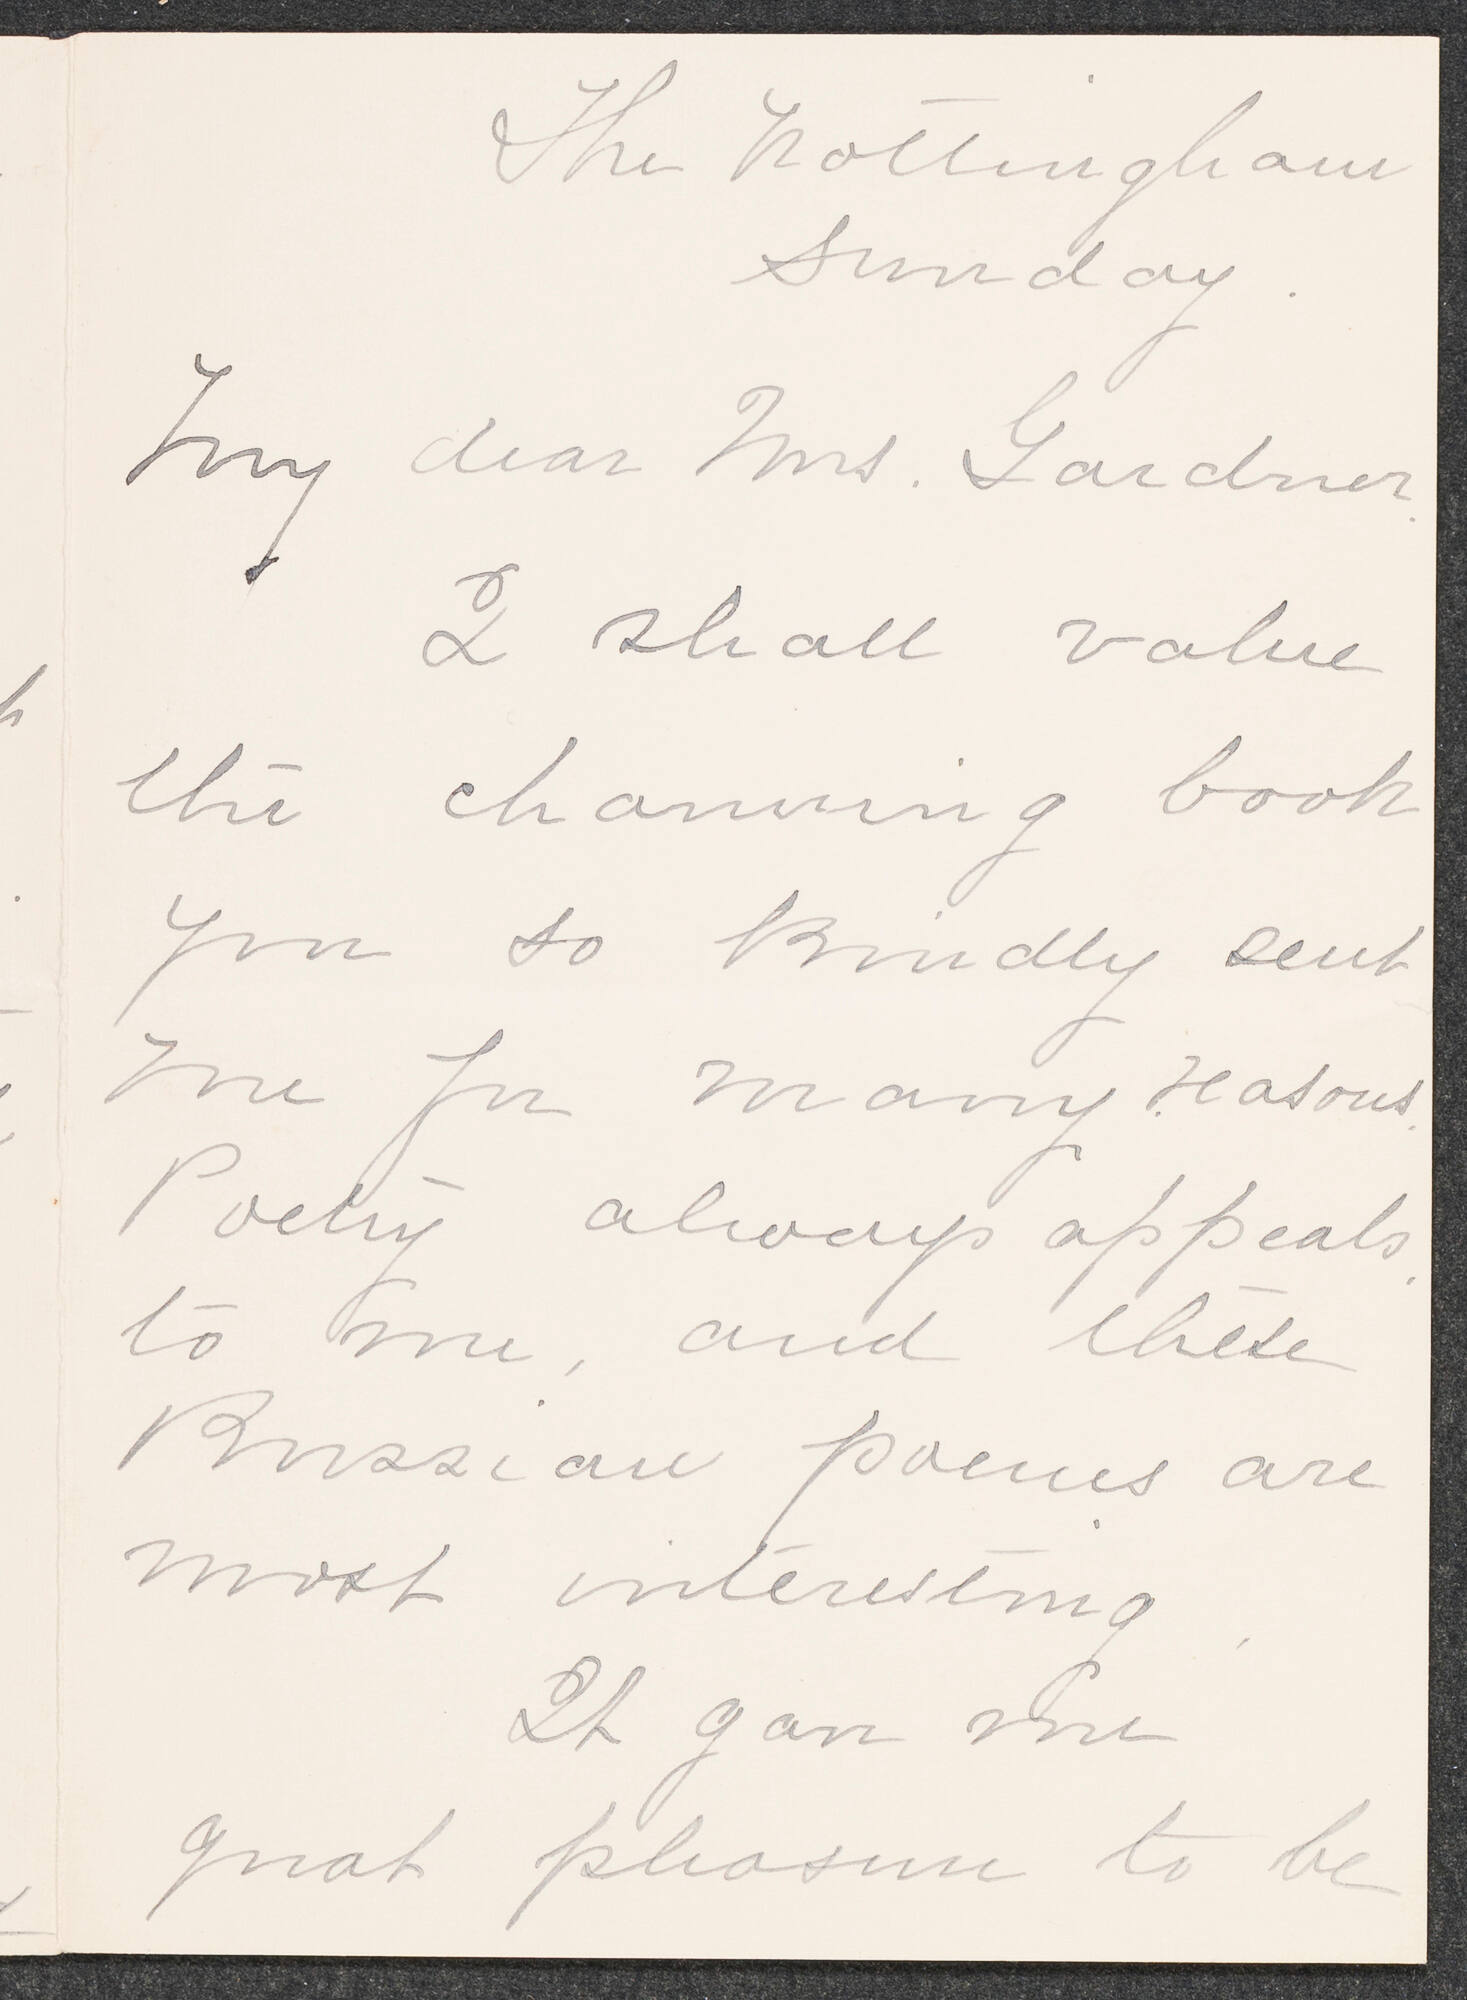 The Nottingham
Sunday.
My dear Mrs. Gardner.
I shall value
the charming book
you so kindly sent
me for many reasons.
Poetry always appeals
to me, and these
Russian poems are
most interesting.
It gave me
great pleasure to be